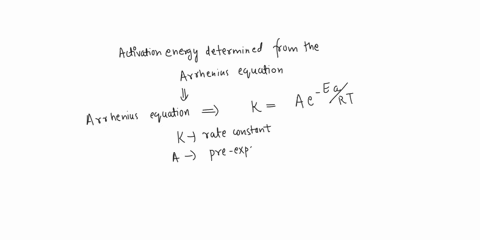 Activation energy determined from the
Arrhenius equation
⇓
Arrhenius equation ⇒ K = Ae^-Ea/RT
K → rate constant
A → pre-exp